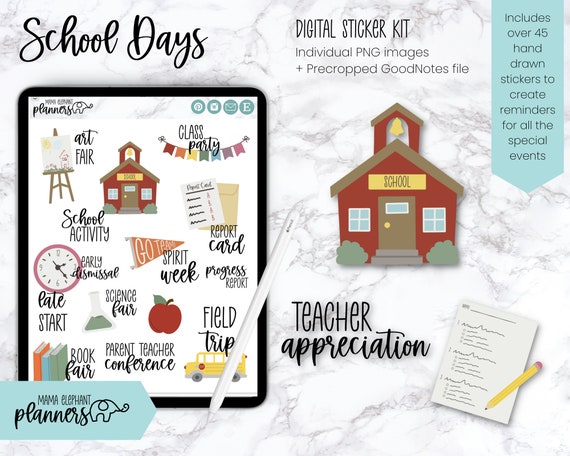 School Days
DIGITAL STICKER KIT
Individual PNG images
+ Precropped GoodNotes file
Includes
over 45
hand
drawn
stickers to
create
reminders
for all the
special
events
MAMA ELEPHANT
planners
art
FAIR
CLASS
party
SCHOOL
Report Card
School
ACTIVITY
REPORT
card
EARLY
dismissal
GO TEAM
SPIRIT
week
progress
REPORT
late
START
SCIENCE
fair
FIELD
trip
BOOK
fair
PARENT TEACHER
conference
SCHOOL
TEACHER
appreciation
MAMA ELEPHANT
planners